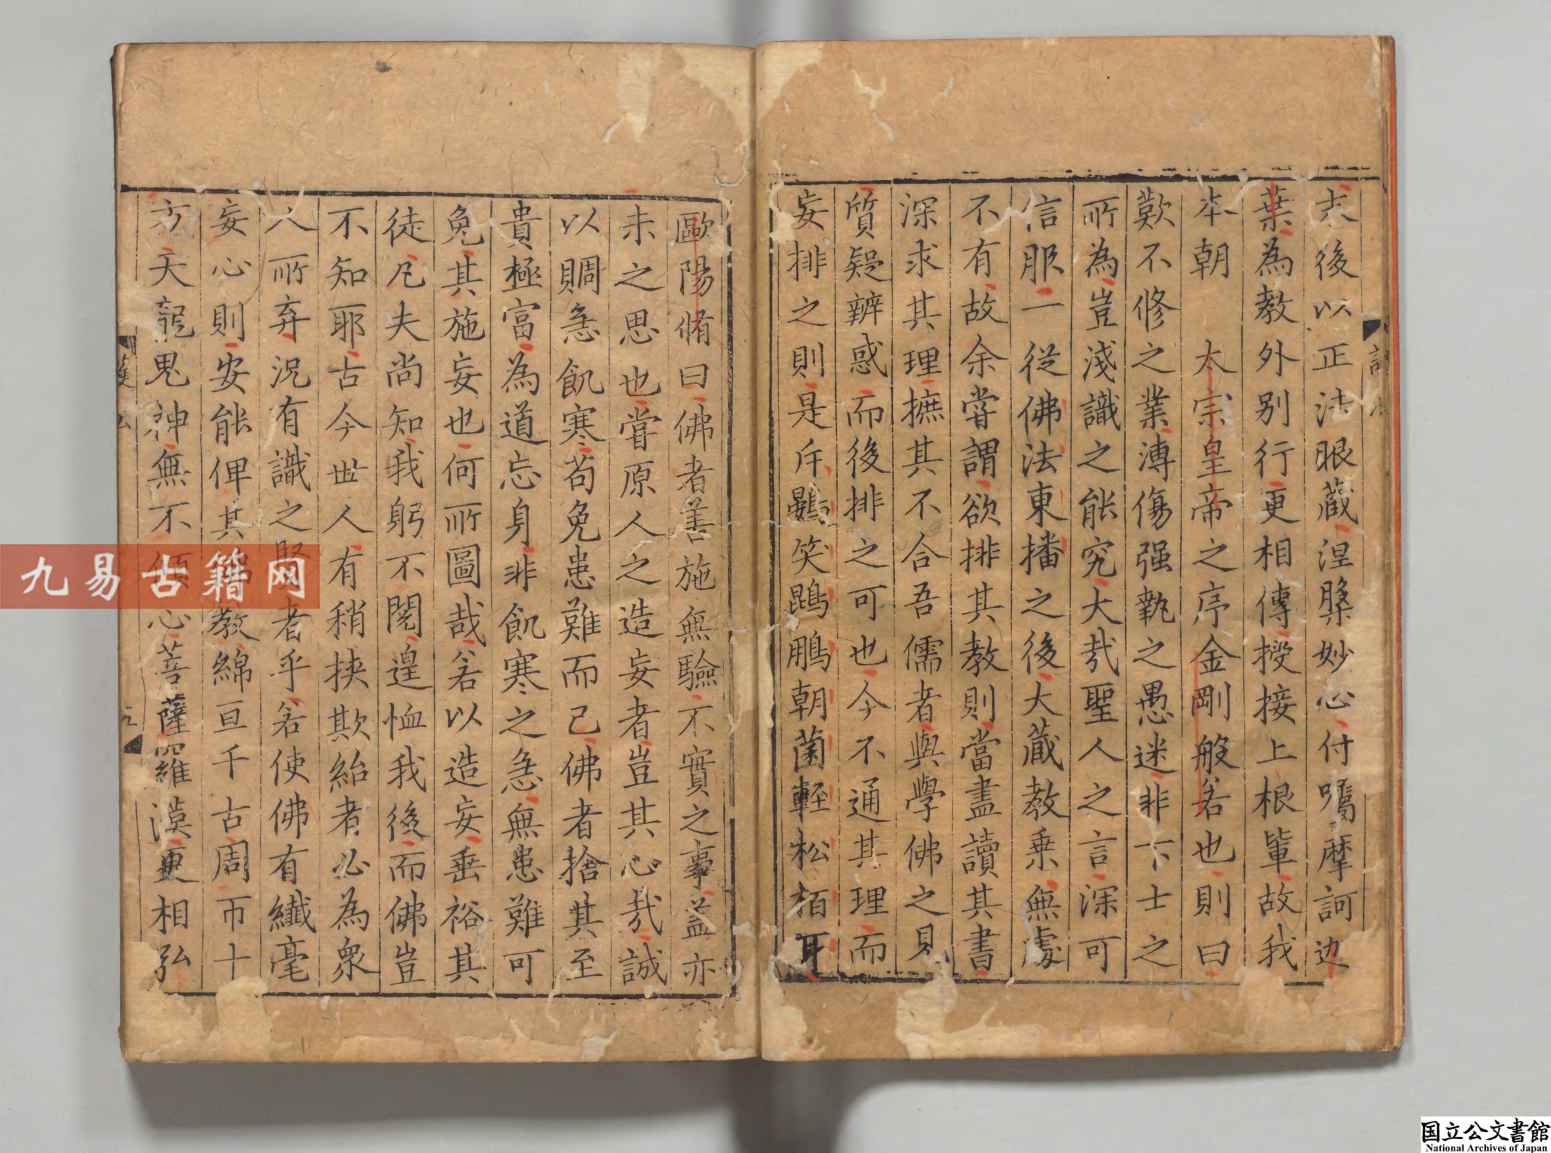 末後以正法眼藏涅槃妙心付囑摩訶迦
葉為教外別行更相傳授接上根輩故我
本朝 太宗皇帝之序金剛般若也則曰
歎不修之業溥傷强執之愚迷非下士之
所為豈淺識之能究大哉聖人之言深可
信服一從佛法東播之後大藏教乗無處
不有故余嘗謂欲排其教則當盡讀其書
深求其理摭其不合吾儒者與學佛之見
質疑辨惑而後排之可也今不通其理而
妄排之則是斥鷃笑鵾鵬朝菌輕松栢耳
歐陽脩曰佛者善施無驗不實之事蓋亦
未之思也嘗原人之造妄者豈其心哉誠
以賙急飢寒苟免患難而已佛者捨其至
貴極富為道忘身非飢寒之急無患難可
免其施妄也何所圖哉若以造妄垂裕其
徒凡夫尚知我躬不閱遑恤我後而佛豈
不知耶古今世人有稍挾欺紿者必為衆
人所弃況有識之賢者乎若使佛有纎毫
妄心則安能俾其教綿亘千古周帀十
方天龍鬼神無不傾心菩薩羅漢更相弘
九易古籍网
国立公文書館
National Archives of Japan